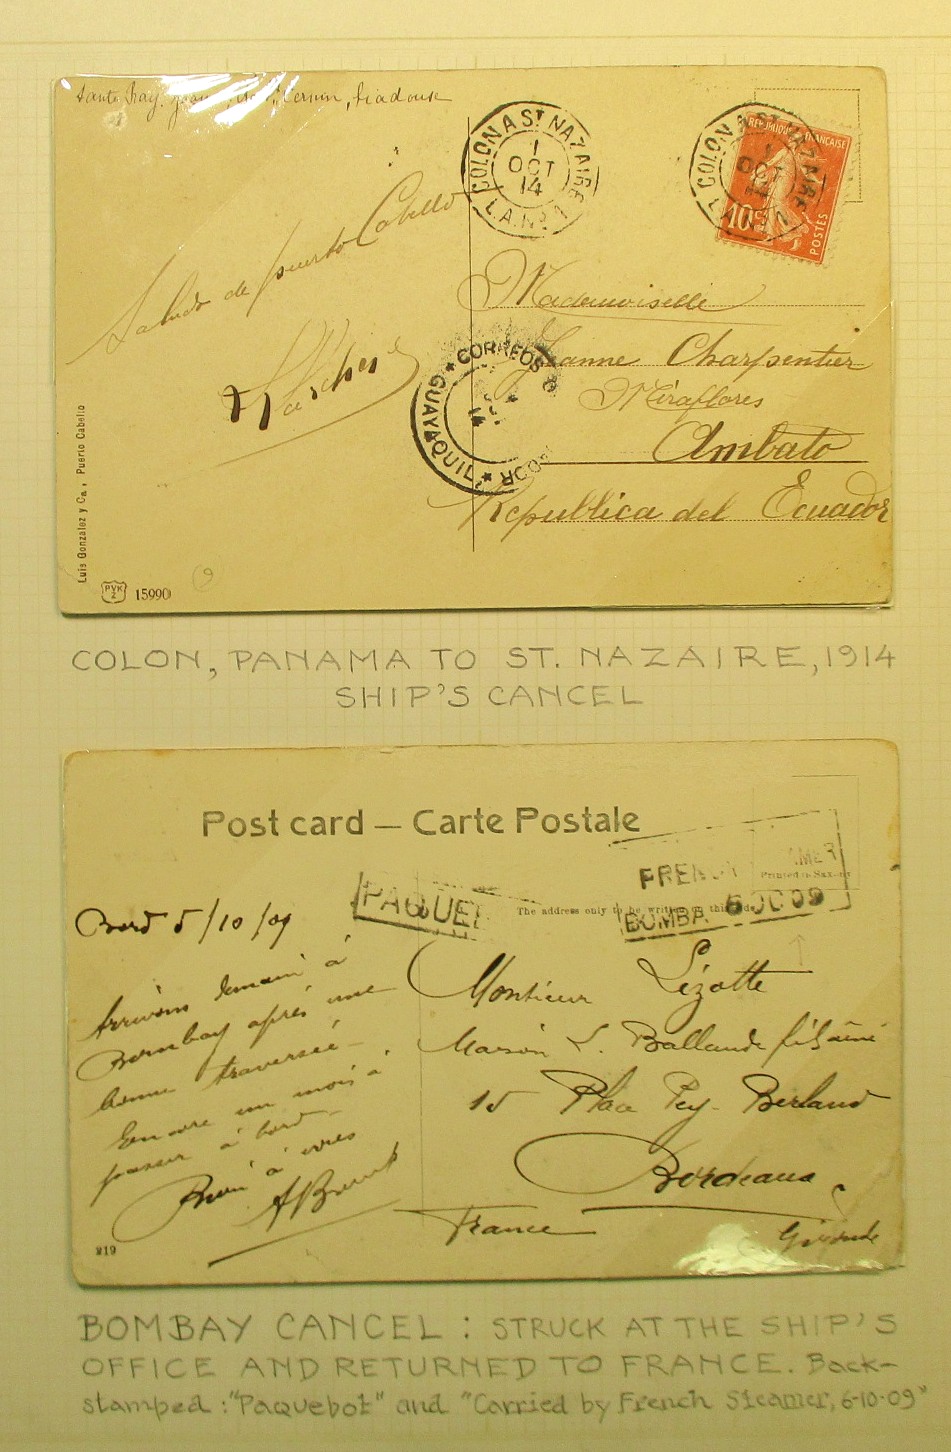 COLON A ST NAZAIRE
1
OCT
14
L.A. No 1
COLON A ST NAZAIRE
1
OCT
14
L.A. No 1
REPUBLIQUE FRANCAISE
10c
POSTES
Saludo de puerto Cabello
Mademoiselle
Jeanne Charpentier
Miraflores
Ambato
Republica del Ecuador
CORREOS
GUAYAQUIL
14
Luis González y Ca., Puerto Cabello
PVK
Z
15990
COLON, PANAMA TO ST. NAZAIRE, 1914
SHIP'S CANCEL
Post card – Carte Postale
PAQUE
FRENCH MER
BOMBA 6 OC 09
Printed in Saxony
The address only to be written on this side
Bord 5/10/09
Arrivons demain à
Bombay après une
bonne traversée
Encore un mois à
passer à bord
Bien à vous
Monsieur Lizotte
Maison L. Ballande fils aîné
15 Place Pey-Berland
Bordeaux
France Gironde
219
BOMBAY CANCEL : STRUCK AT THE SHIP'S
OFFICE AND RETURNED TO FRANCE. Back-
stamped : "Paquebot" and "Carried by French Steamer, 6-10-09"